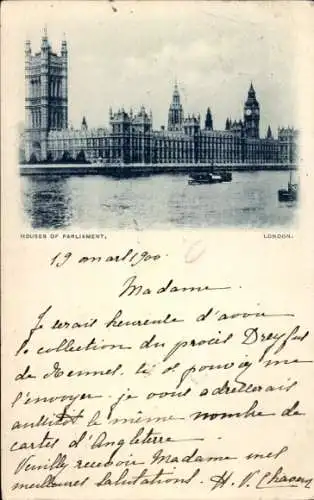 HOUSES OF PARLIAMENT, LONDON.
19 mars 1900
Madame.
Je serais heureuse d'avoir
la collection du procès Dreyfus
de Rennes, si vous pouviez me
l'envoyer. je vous adresserais
aussitôt le même nombre de
cartes d'Angleterre
Veuillez recevoir Madame mes
meilleures salutations. H. V.